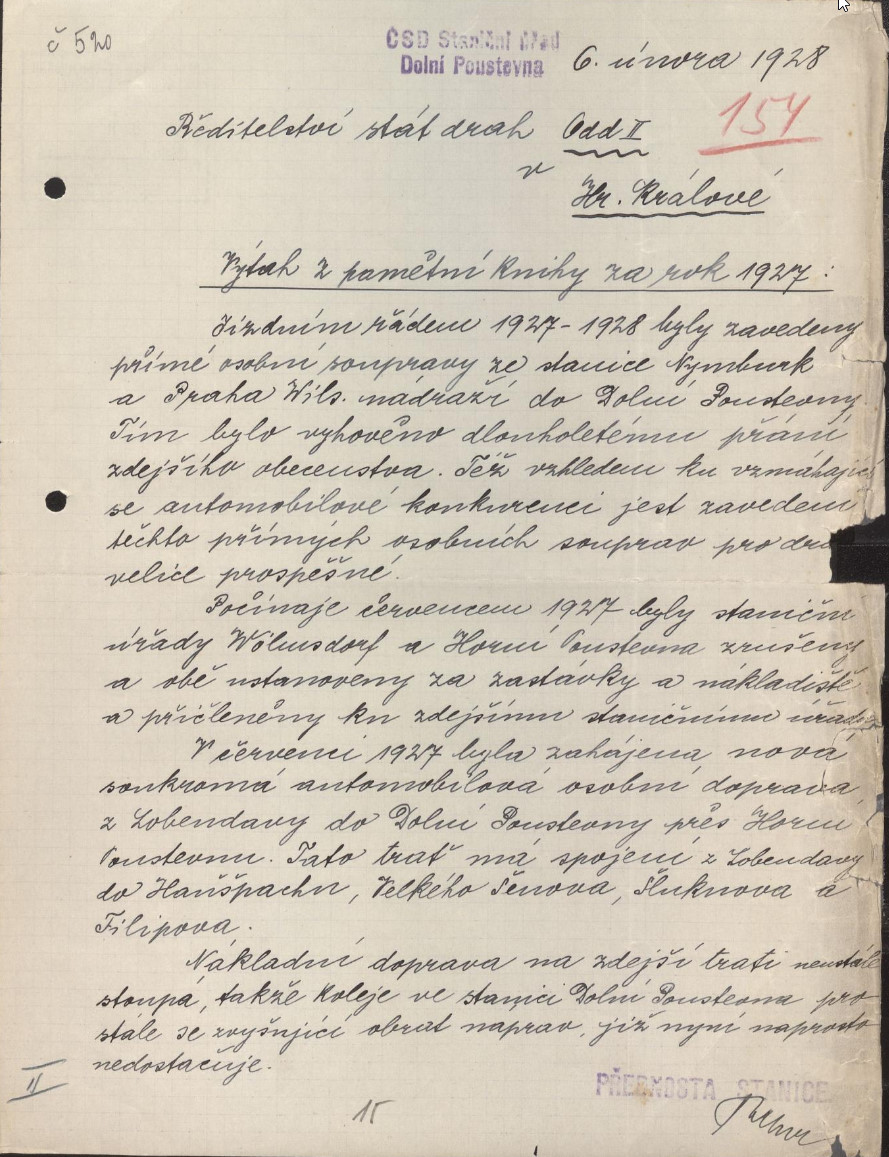 č 520
ČSD Staniční úřad
Dolní Poustevna
6. února 1928
154
Ředitelství stát drah Odd II
v
Hr. Králové
Výtah z pamětní knihy za rok 1927:
Jízdním řádem 1927-1928 byly zavedeny
přímé osobní soupravy ze stanice Nymburk
a Praha Wils. nádraží do Dolní Poustevny.
Tím bylo vyhověno dlouholetému přání
zdejšího obecenstva. Též vzhledem ku vzmáhající
se automobilové konkurenci jest zavedení
těchto přímých osobních souprav pro drá
velice prospěšné.
Počínaje červencem 1927 byly staniční
úřady Wölmsdorf a Horní Poustevna zrušeny
a obě ustanoveny za zastávky a nákladiště
a přičleněny ku zdejšímu staničnímu úřadu
V červenci 1927 byla zahájena nová
soukromá automobilová osobní doprava
z Lobendavy do Dolní Poustevny přes Horní
Poustevnu. Tato trať má spojení z Lobendavy
do Hanšpachu, Velkého Šenova, Šluknova a
Filipova.
Nákladní doprava na zdejší trati neustále
stoupá, takže koleje ve stanici Dolní Poustevna pro
stále se zvyšující obrat naprav, již nyní naprosto
nedostačuje.
II
15
PŘEDNOSTA STANICE